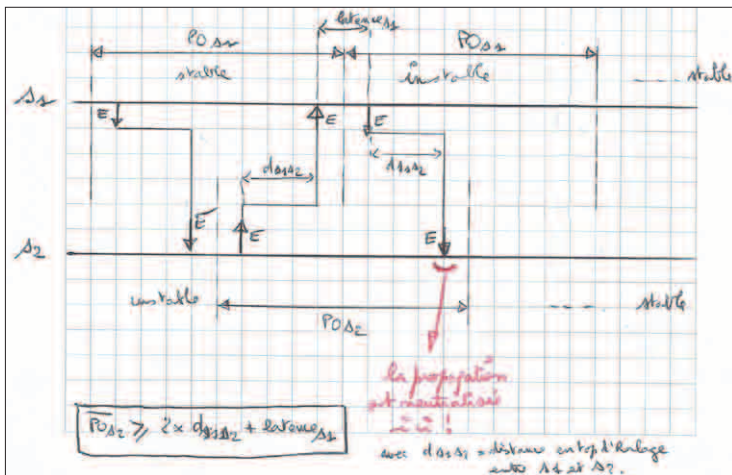 latence s1
PO s1
PO s1
stable
instable
---- stable
s1
E
E
E
d s1s2
d s1s2
E
E
E
s2
instable
PO s2
---- stable
la propagation
est neutralisée
ici !
PO s2 ≥ 2 x d s1s2 + latence s1
avec d s1s2 = distance en top d'horloge
entre s1 et s2.